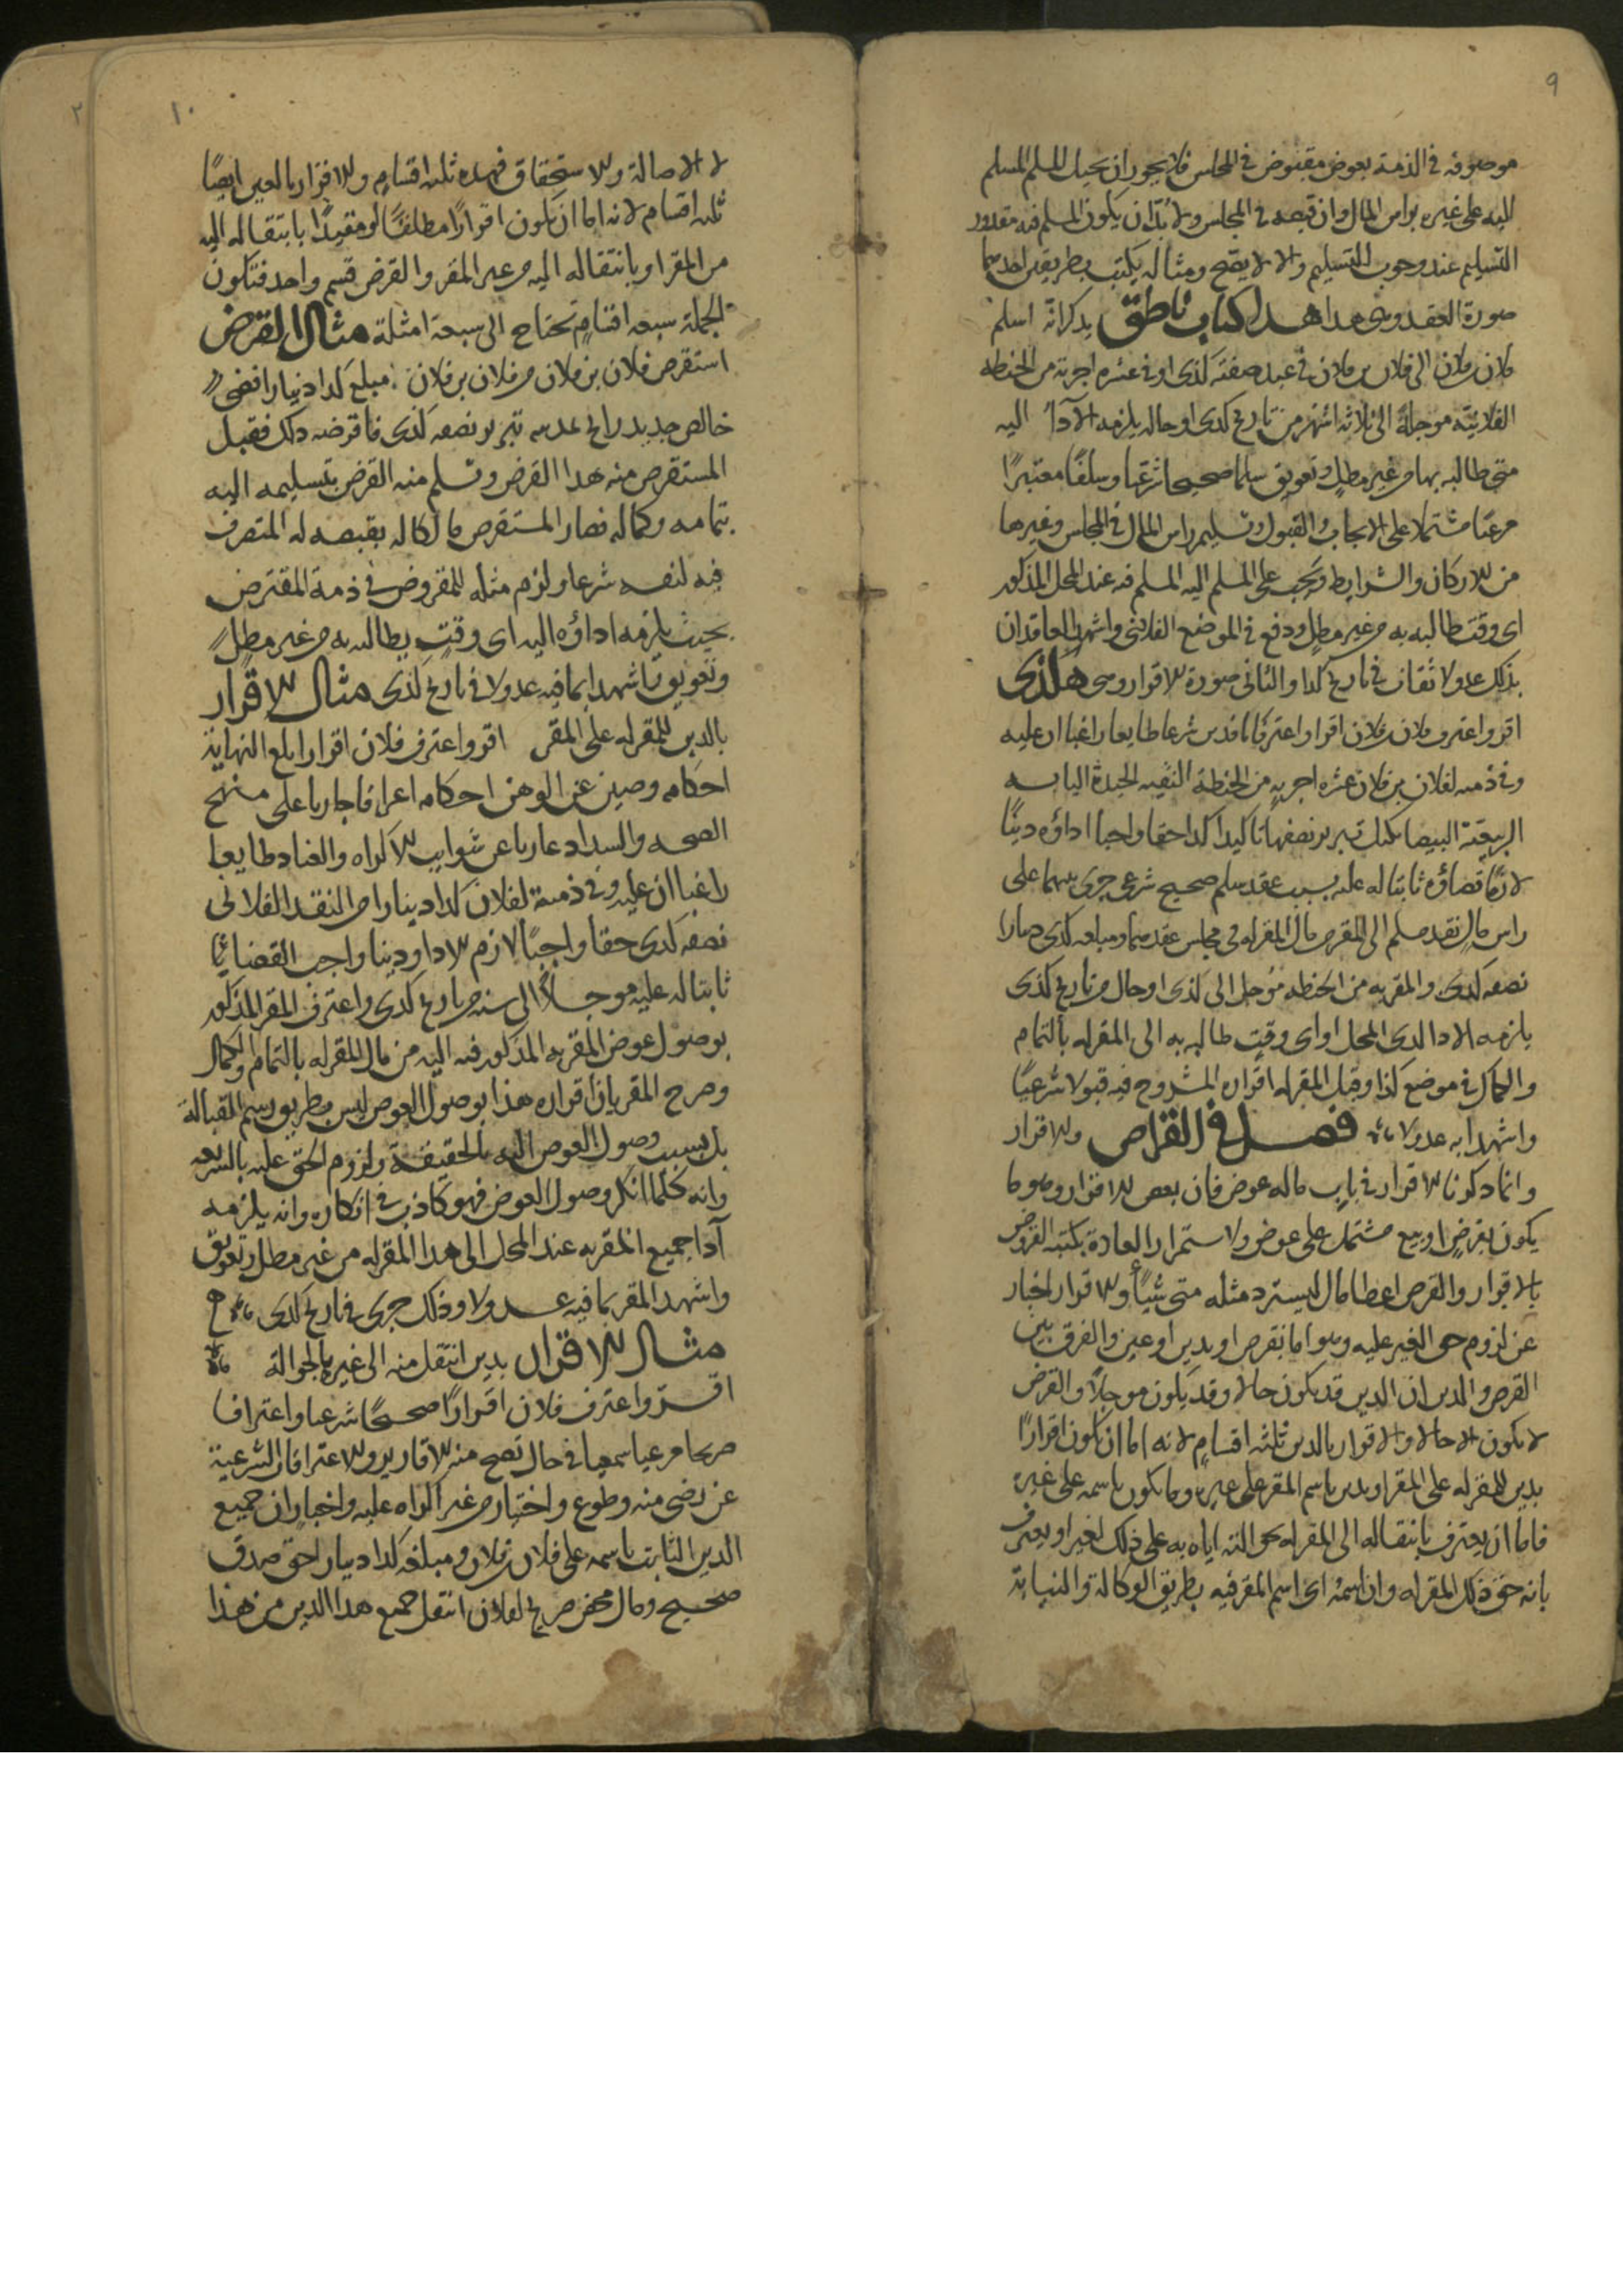 ٩
موصوفه في الذمة بعوض مقبوض في المجلس فلا يجوز ان يحيل المسلم المسلم
اليه على غيره براس المال وان قبضه في المجلس ولا بد ان يكون المسلم فيه مقدور
التسليم عند وجوب التسليم والا لا يصح ومثاله يكتب بطريقين احدهما
صورة العقد وهي هذا هذا كتاب ناطق بذكر انه اسلم
فلان بن فلان الى فلان بن فلان في عبد صفته كذى او في عشره اجربة من الحنطه
الفلانيه موجلة الى ثلاثه اشهر من تاريخ كذى او حاله يلزمه الآداء اليه
متى طالبه بها من غير مطل وتعويق سلما صحيحا شرعيا وسلفا معتبرًا
مرعيا مشتملا على الايجاب والقبول وتسليم راس المال في المجلس وغيرها
من الاركان والشرايط ويجب على المسلم اليه المسلم فيه عند المحل المذكور
اى وقت طالبه به من غير مطل ودفع في الموضع الفلاني واشهد العاقدان
بذلك عدولا ثقات في تاريخ كذا والثاني صورة الاقرار وهي هكذى
اقر واعترف فلان بن فلان اقرارا واعترافا نافذين شرعا طايعا راغبا ان عليه
وفي ذمته لفلان بن فلان عشره اجربه من الحنطة النقيه الجيدة اليابسه
الربيعية البيضا بكيل تبريز نصفها تاكيدا كذا حقا واجبا اداؤه دينًا
لازمًا قضاؤه ثابتا له عليه بسبب عقد سلم صحيح شرعى جرى بينهما على
راس مال نقد مسلم الى المقر من مال المقر له في مجلس عقدهما ومبلغه كذى دينارا
نصفه كذى والمقر به من الحنطه مؤجل الى كذى او حال من تاريخ كذى
يلزمه الادا لدى المحل او اى وقت طالبه به الى المقر له بالتمام
والكمال في موضع كذا وقبل المقر له اقراره المشروح فيه قبولا شرعيًا
واشهدا به عدولا فصل في القراض والاقرار
وانما ذكرنا الاقرار في باب ماله عوض فان بعض الاقرار وهو ما
يكون بقرض او بيع مشتمل على عوض ولاستمرار العادة بكتبه القروض
بالاقرار والقرض اعطا مال ليسترد مثله متى شيئًا والاقرار اخبار
عن لزوم حق الغير عليه وهو اما بقرض او بدين او عين والفرق بين
القرض والدين ان الدين قد يكون حالا وقد يكون موجلًا والقرض
لا يكون الا حالا والاقرار بالدين ثلثه اقسام لانه اما ان يكون اقرارًا
بدين للمقر له على المقر او بدين باسم المقر على غيره وما يكون باسمه على غيره
فاما ان يعترف بانتقاله الى المقر له بحوالته اياه به على ذلك الغير او يعترف
بانه حق ذلك المقر له وان اسمه اى اسم المقر فيه بطريق الوكالة والنيابة
١٠
لا الاصالة والاستحقاق فهذه ثلثه اقسام والاقرار بالعين ايضًا
ثلثه اقسام لانه اما ان يكون اقرارًا مطلقًا او مقيدًا بانتقاله اليه
من المقر او بانتقاله اليه من غير المقر والقرض قسم واحد فتكون
الجملة سبعه اقسام تحتاج الى سبعة امثلة مثال القرض
استقرض فلان بن فلان من فلان بن فلان مبلغ كذا دينارا فضي
خالص جديد رايج بمدينه تبريز نصفه كذى فاقرضه ذلك فقبل
المستقرض منه هذا القرض وتسلم منه القرض بتسليمه اليه
بتمامه وكماله فصار المستقرض مالكا له بقبضه له المتصرف
فيه لنفسه شرعا ولزم مثله للمقروض في ذمة المقترض
بحيث يلزمه اداؤه اليه اى وقت يطالبه به من غير مطل
وتعويق واشهدا بما فيه عدولا في تاريخ كذى مثال الاقرار
بالدين للمقر له على المقر اقر واعترف فلان اقرارا بلغ النهاية
احكامه وصين عن الوهن احكامه اعترافا جاريا على منهج
الصحه والسداد عاريا عن شوايب الاكراه والعناد طايعا
راغبا ان عليه وفي ذمته لفلان كذا دينارا من النقد الفلانى
نصفه كذى حقا واجبًا لازم الادا ودينا واجب القضا
ثابتا له عليه موجلًا الى سنه من تاريخ كذى واعترف المقر المذكور
بوصول عوض المقر به المذكور فيه اليه من مال المقر له بالتمام والكمال
وصرح المقر بان اقراره هذا بوصول العوض ليس بطريق رسم القبالة
بل بسبب وصول العوض اليه بالحقيقة ولزوم الحق عليه بالشريعه
وانه كلما انكر وصول العوض فهو كاذب في انكاره وانه يلزمه
آدا جميع المقر به عند المحل الى هذا المقر له من غير مطل وتعويق
واشهد المقر بما فيه عدولا وذلك جرى في تاريخ كذى
مثال الاقرار بدين انتقل منه الى غيره بالحوالة
اقر واعترف فلان اقرارًا صحيحًا شرعيا واعترافا
صريحا مرعيا سمعيا في حال تصح منه الاقارير والاعترافات الشرعية
عن رضى منه وطوع واختيار من غير اكراه عليه واجبار ان جميع
الدين الثابت باسمه على فلان بن فلان ومبلغه كذا دينار حق صدق
صحيح ومال محض صريح لفلان انتقل جميع هذا الدين من هذا